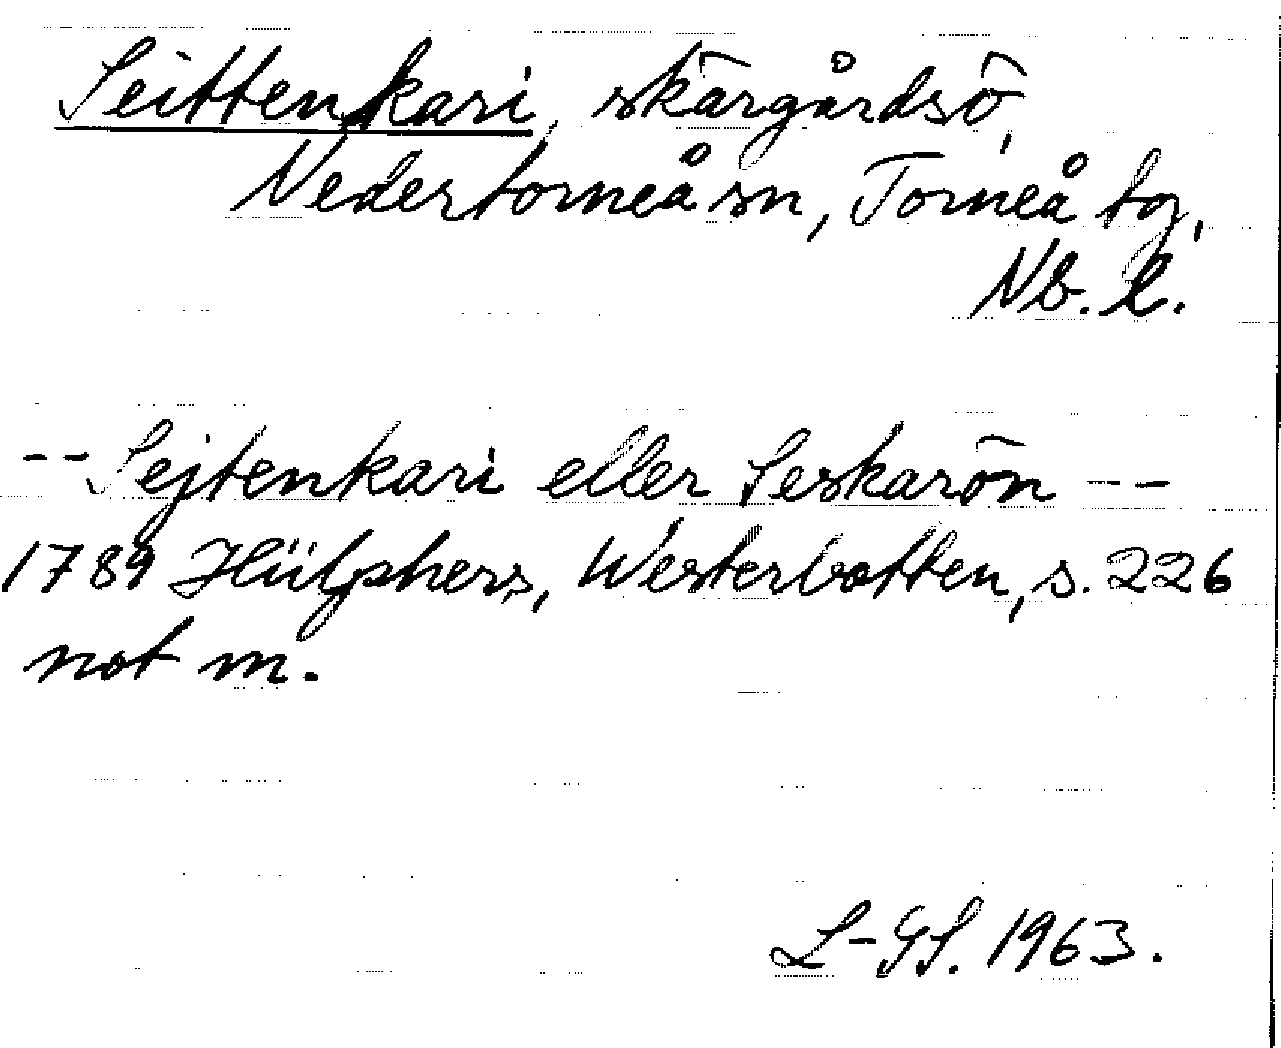 Seittenkari, skärgårdsö,
Nedertorneå sn, Torneå tg,
Nb. l.
-- Sejtenkari eller Seskarön --
1789 Hülphers, Westerbotten, s. 226
not m.
L-GS. 1963.